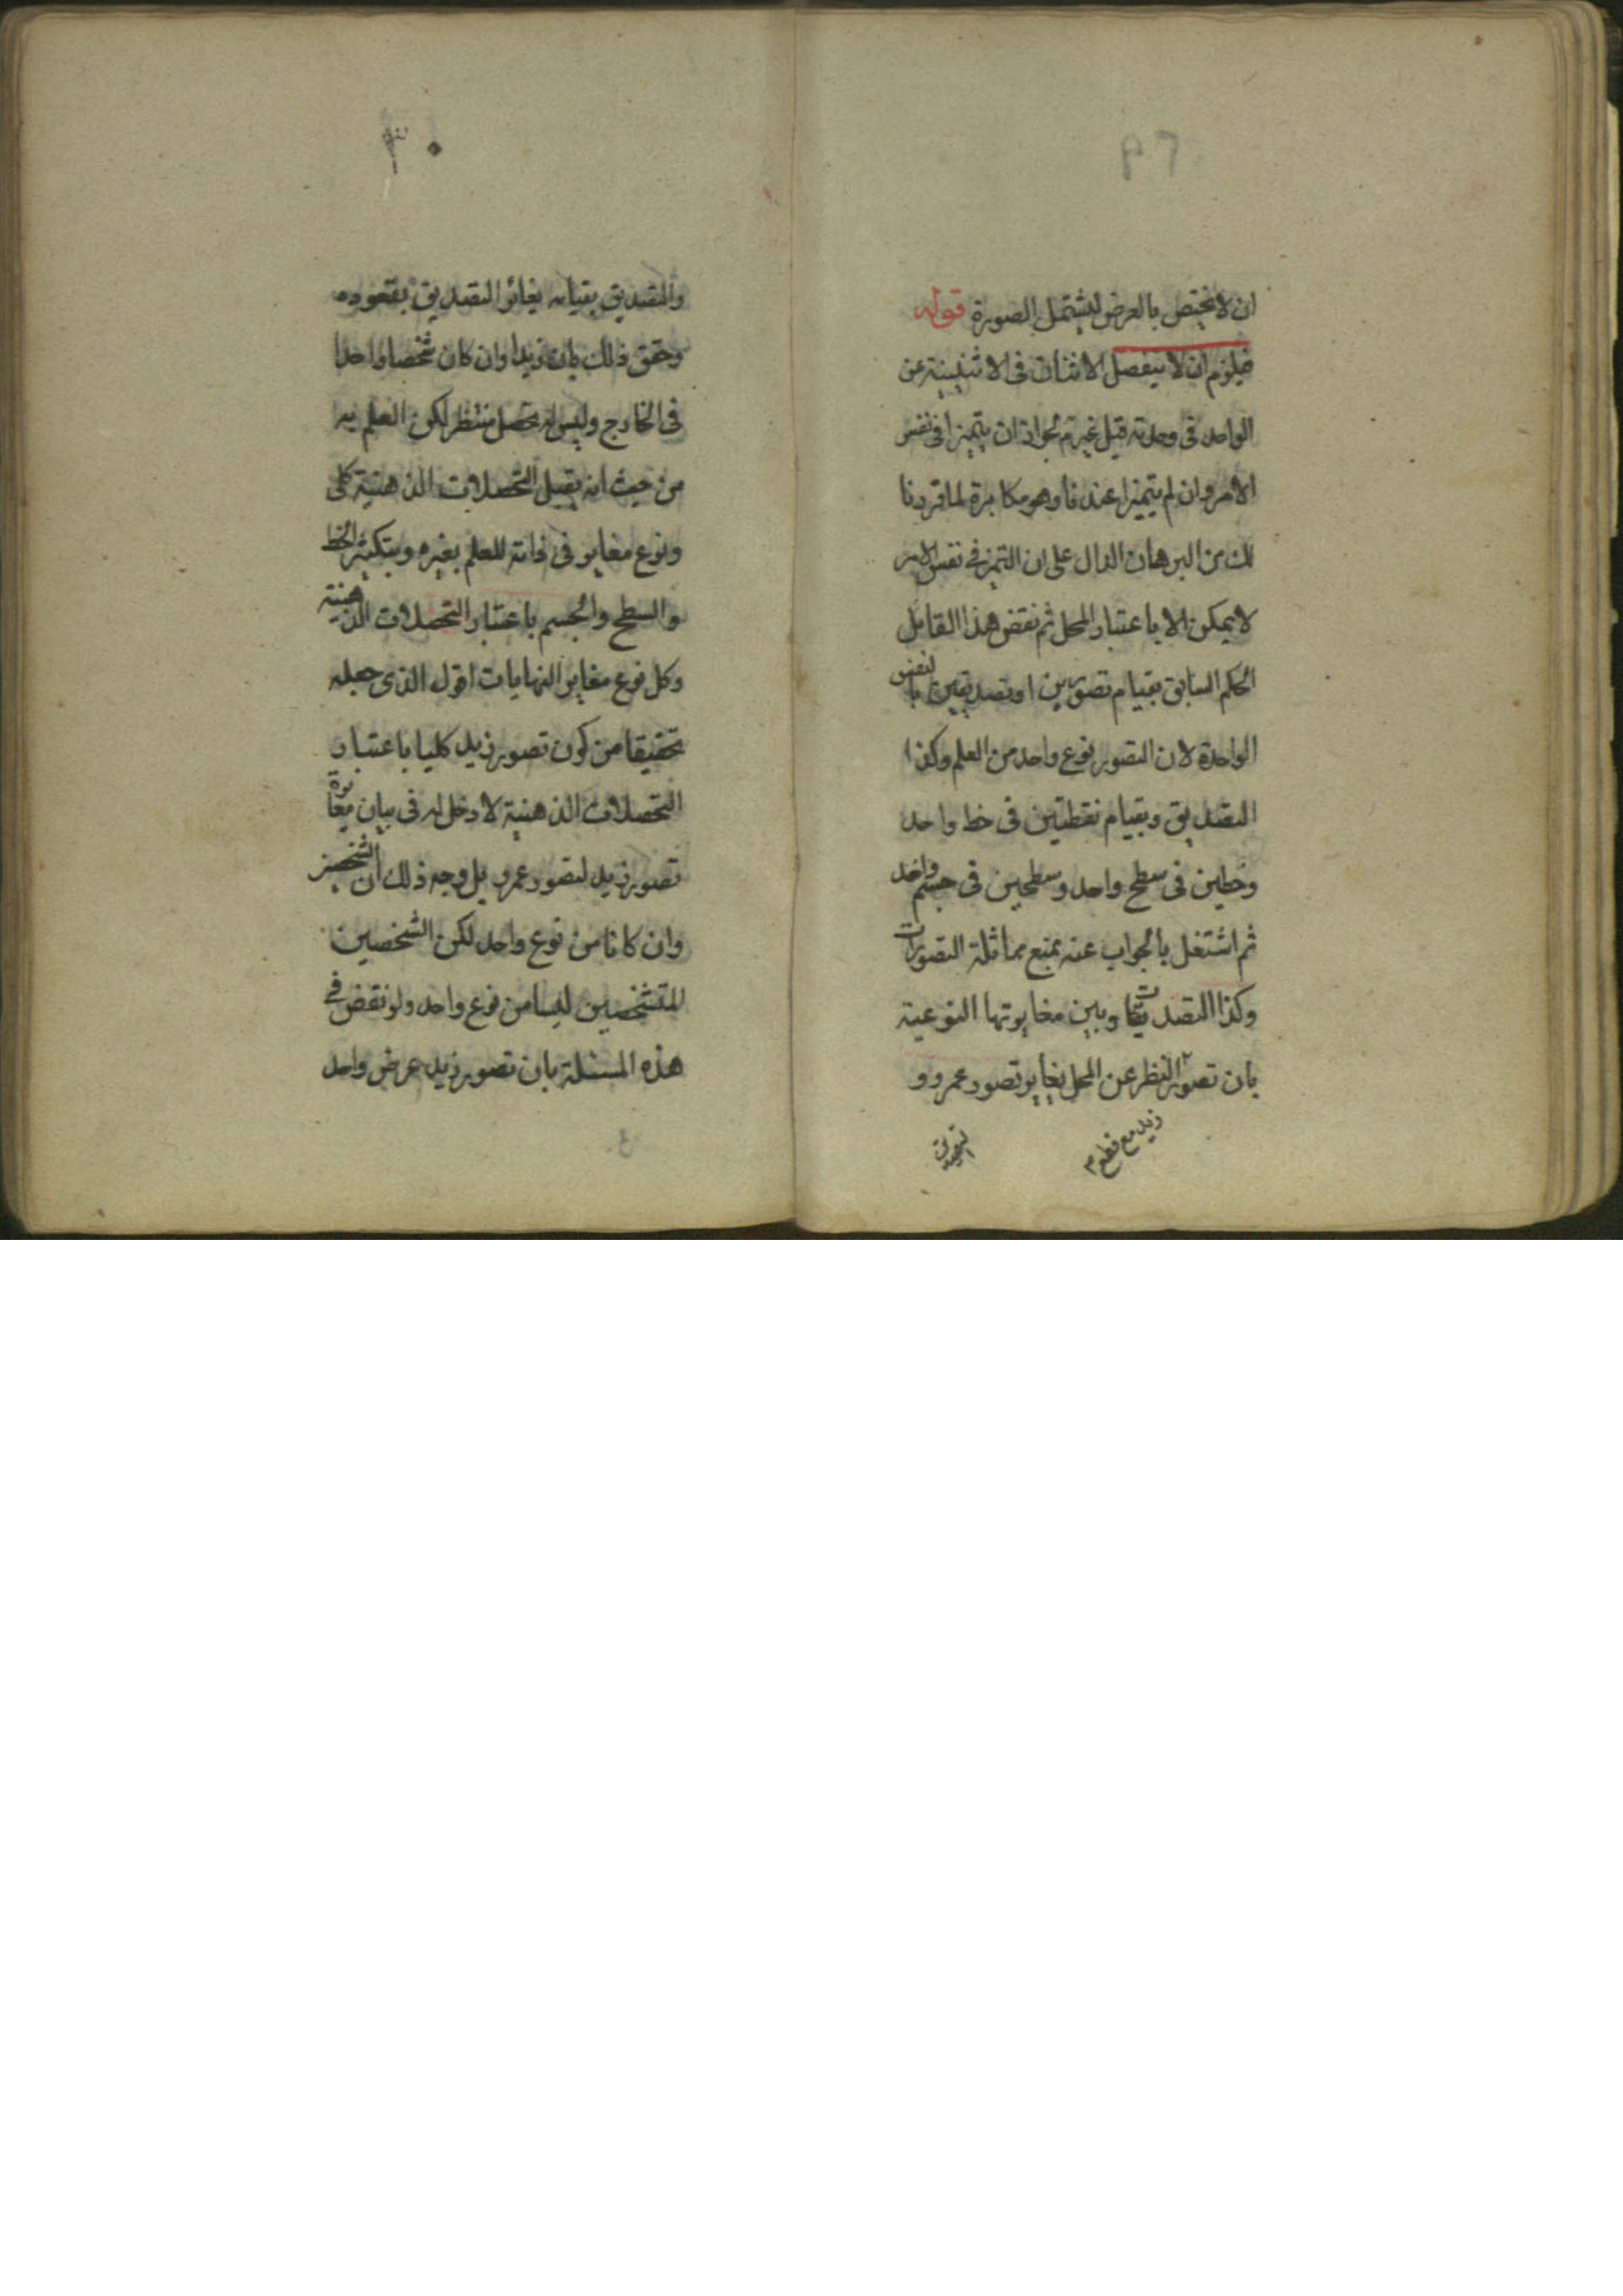 ٢٩
ان لا يختص بالعرض ليشتمل الصورة قوله
فيلزم ان لا ينفصل الاثنان فى الاثنينية عن
الواحد فى وحدته قيل غير تم لجواز ان يتميزا فى نفس
الامر وان لم يتميزا عندنا وهو مكابرة لما قررنا
لك من البرهان الدال على ان التميز فى نفس الامر
لا يمكن الا باعتبار المحل ثم نقض هذا القايل
الحكم السابق بقيام تصورين او تصديقين بالنفس
الواحدة لان التصور نوع واحد من العلم وكذا
التصديق وبقيام نقطتين فى خط واحد
وخطين فى سطح واحد وسطحين فى جسم واحد
ثم اشتغل بالجواب عنه بمنع مماثلة التصورات
وكذا التصديقات وبين مغايرتها النوعية
بان تصور النظر عن المحل يغاير تصور عمرو و
زيد مع قطع
التصديق
٣٠
والتصديق بقيامه يغائر التصديق بقعوده
وحقق ذلك بان زيدا وان كان شخصا واحدا
فى الخارج وليس له تحصل منتظر لكن العلم به
من حيث انه يقبل التحصلات الذهنية كلى
ونوع مغاير فى ذاته للعلم بغيره وبتكثير الخط
والسطح والجسم باعتبار التحصلات الذهنية
وكل نوع مغاير النهايات اقول الذى جعله
تحقيقا من كون تصور زيد كليا باعتبار
التحصلات الذهنية لا دخل له فى بيان مغايرة
تصور زيد لتصور عمرو بل وجه ذلك ان الشخصين
وان كانا من نوع واحد لكن الشخصين
المتشخصين ليسا من نوع واحد ولو نقض فى
هذه المسئلة بان تصور زيد عرض واحد